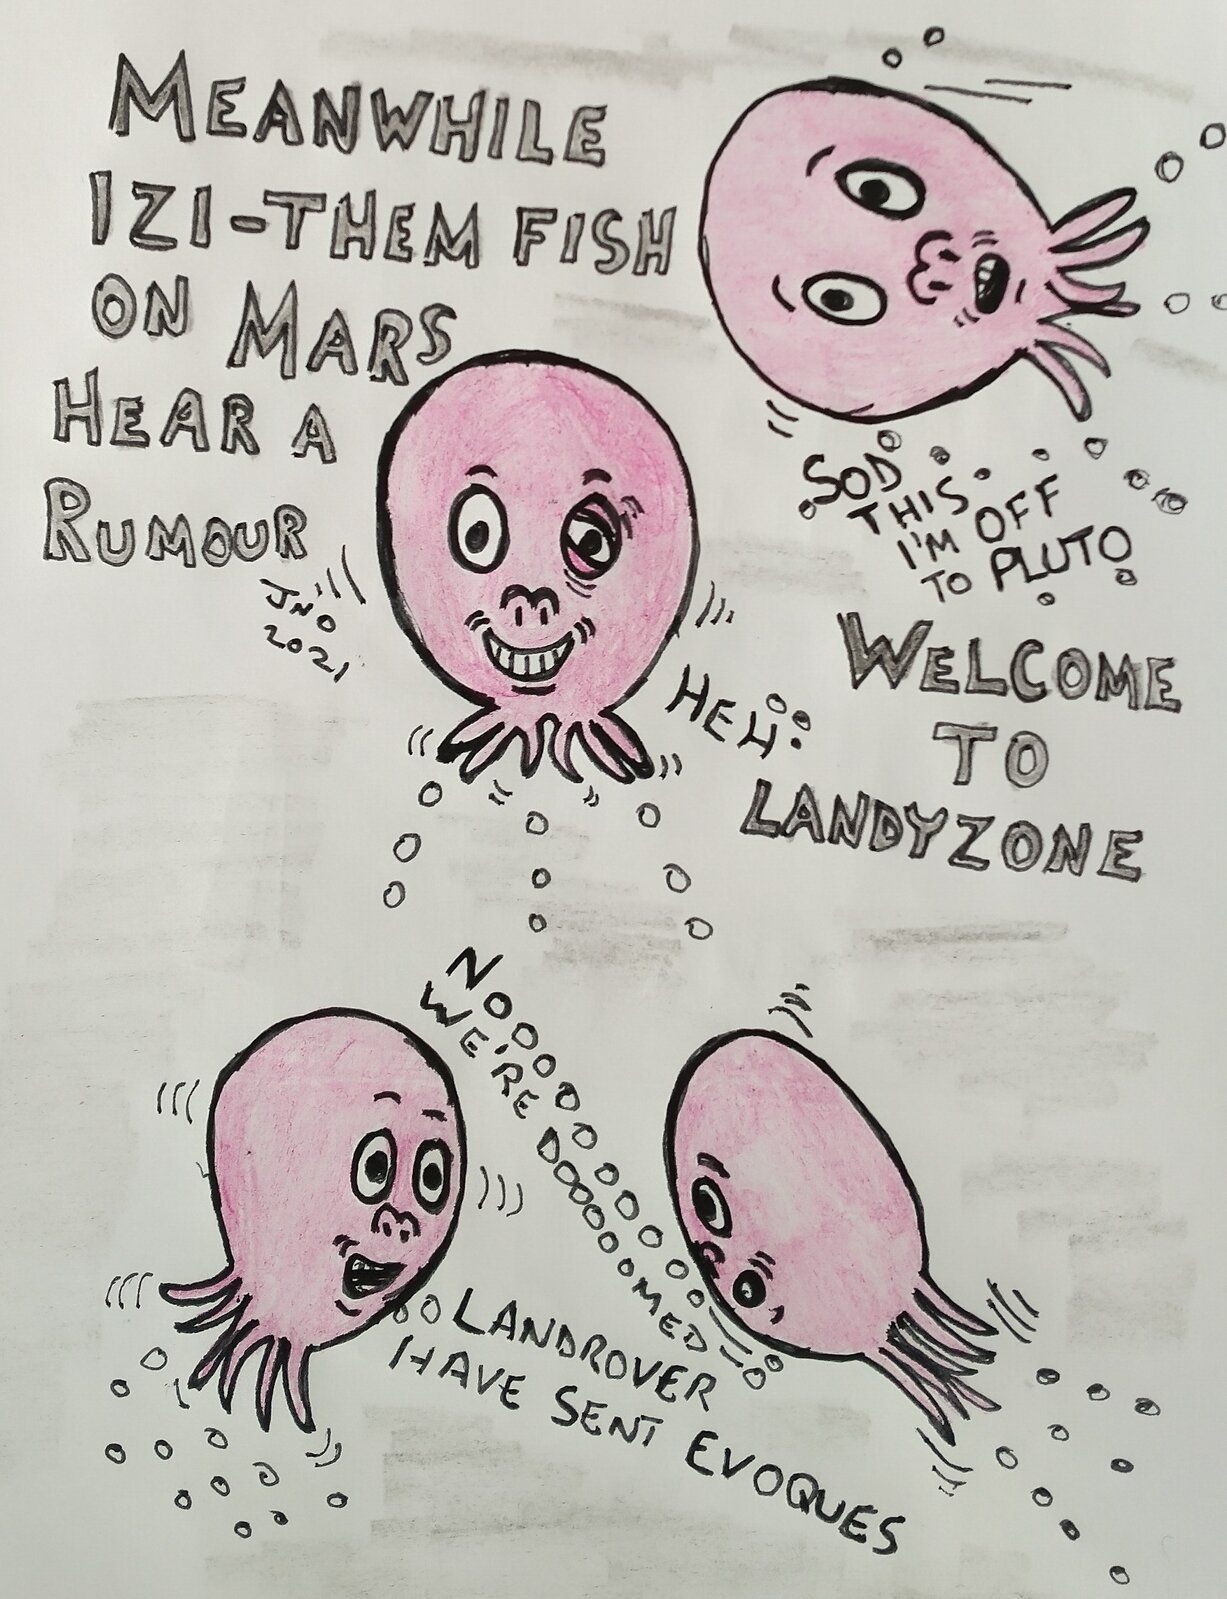 MEANWHILE
IZI-THEM FISH
ON MARS
HEAR A
RUMOUR
JNO
2021
SOD
THIS
I'M OFF
TO PLUTO
HEH.
WELCOME
TO
LANDYZONE
NOOOOOOOOOOOO
WE'RE DOOOOOMED
LANDROVER
HAVE SENT EVOQUES